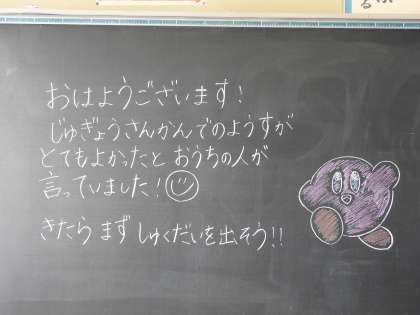 おはようございます!
じゅぎょうさんかんでのようすが
とてもよかったと おうちの人が
言っていました!
きたら まず しゅくだいを出そう!!